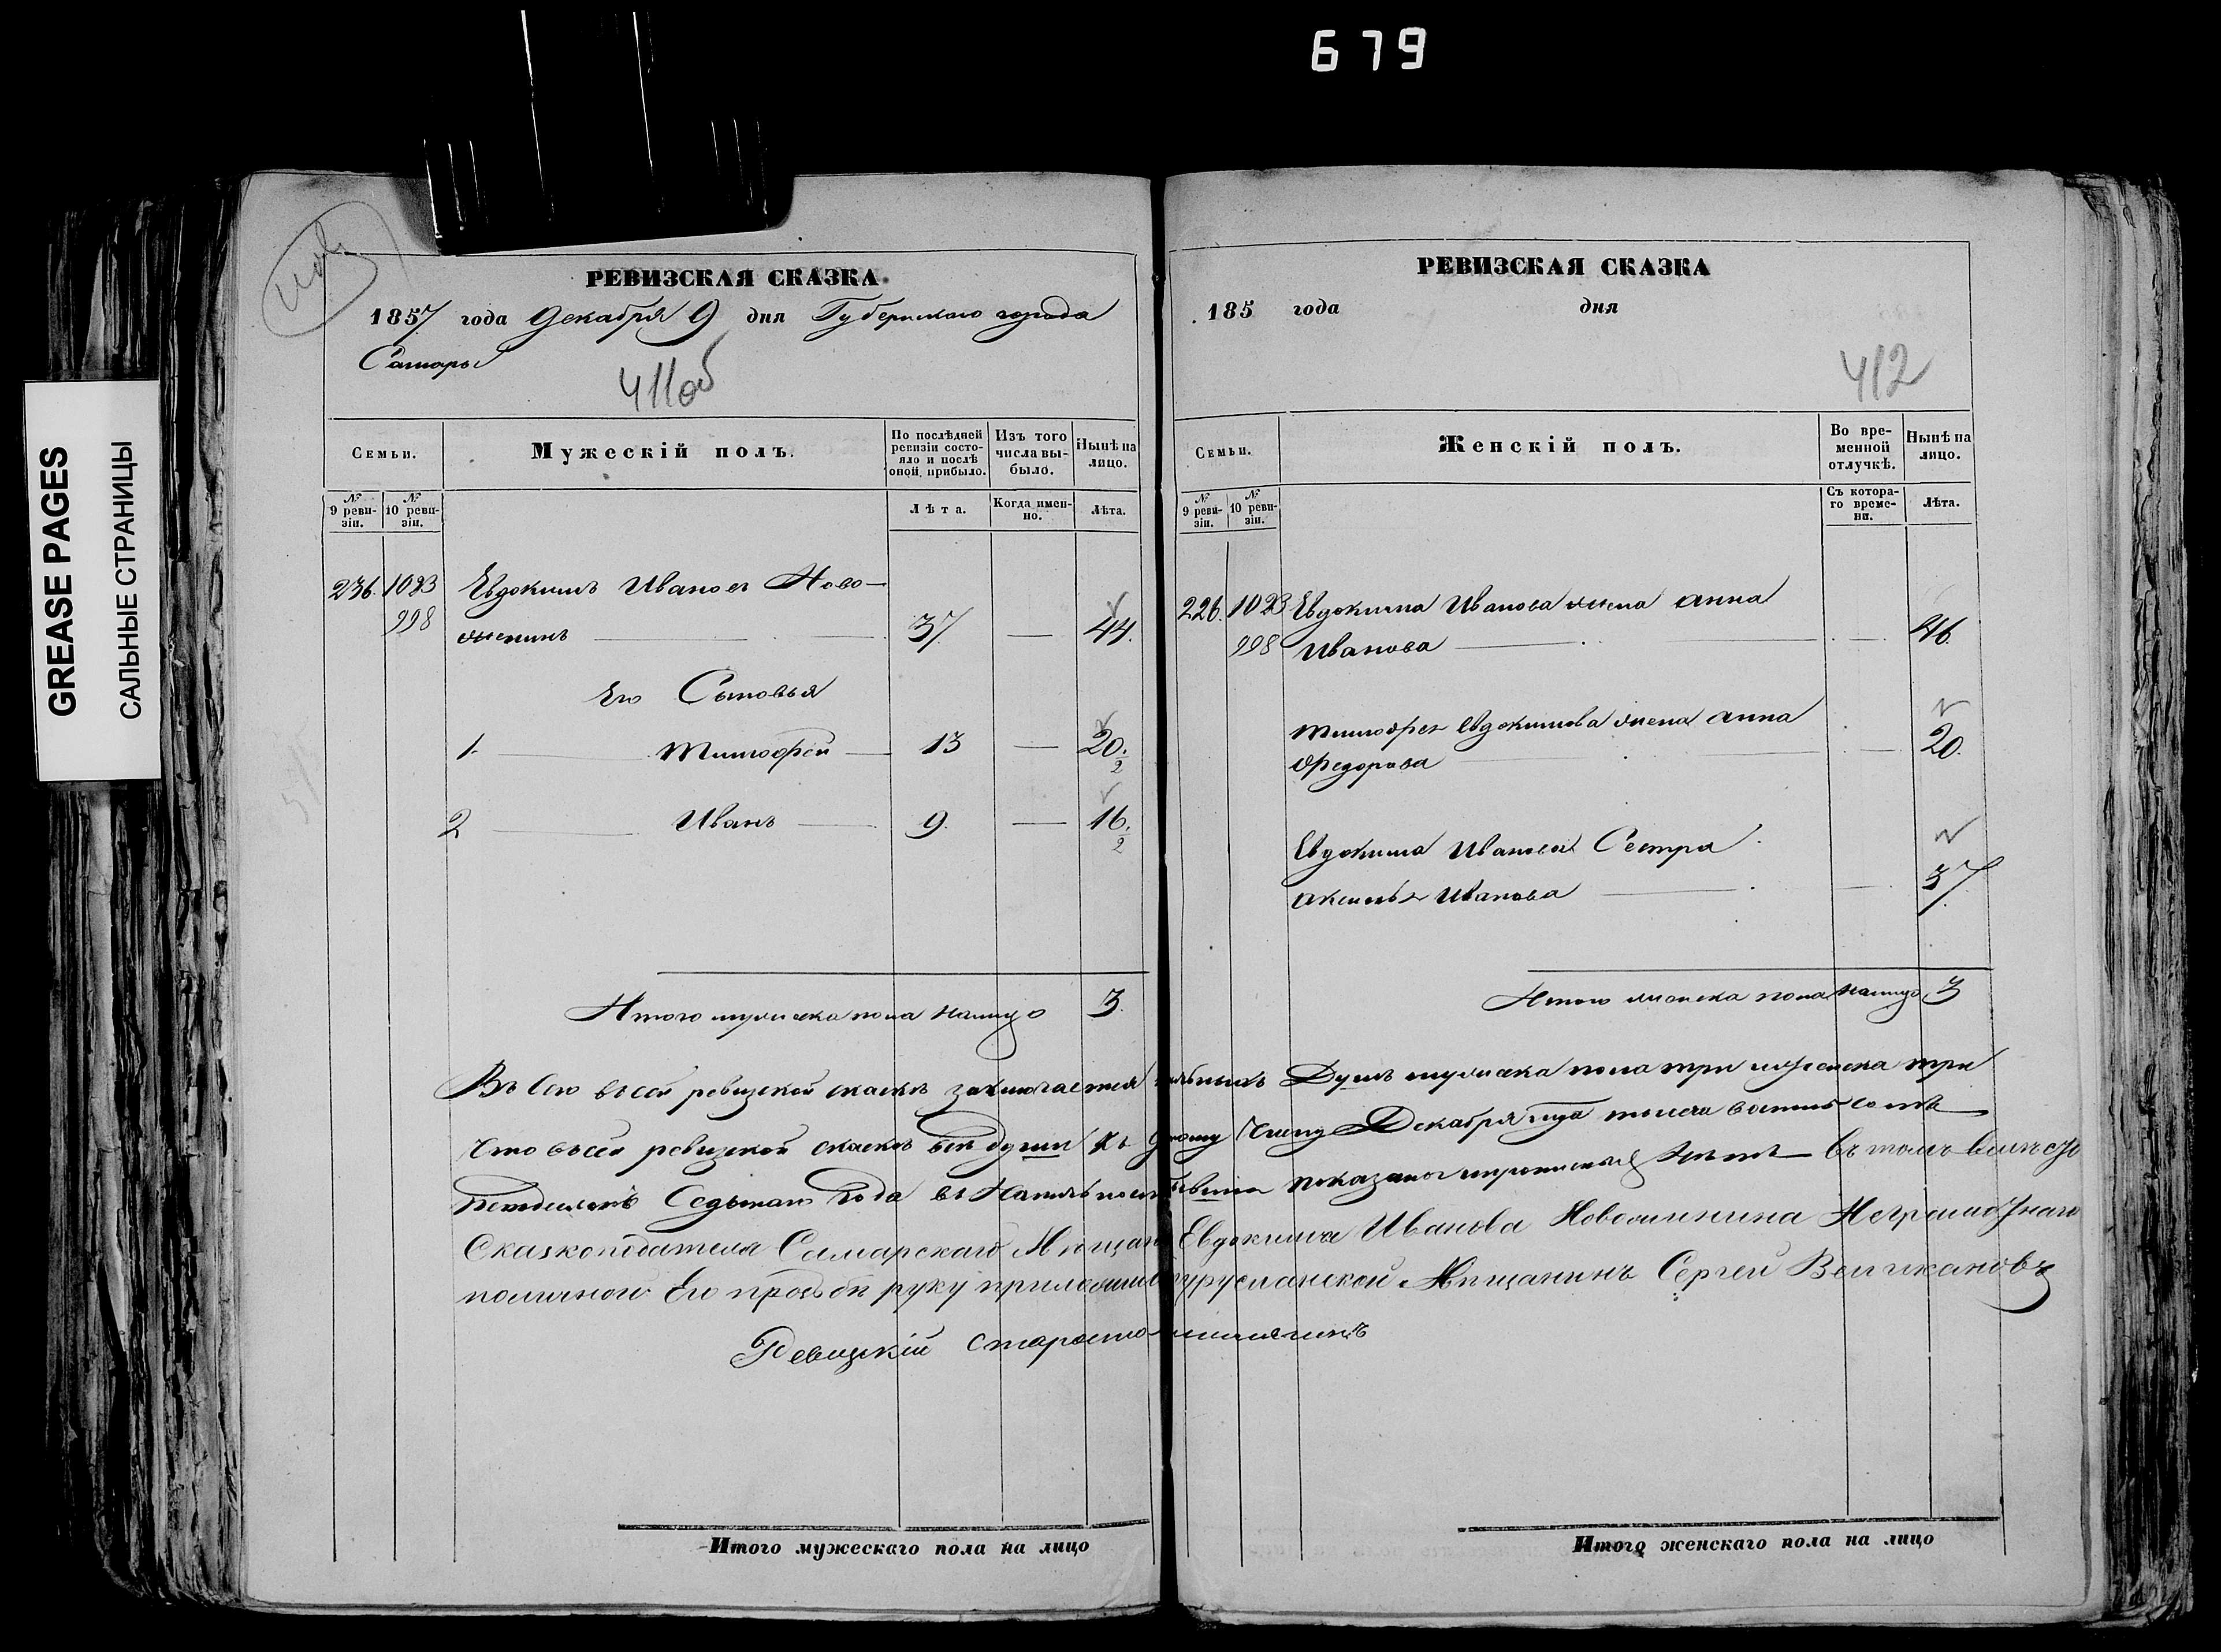 679
GREASE PAGES
САЛЬНЫЕ СТРАНИЦЫ
РЕВИЗСКАЯ СКАЗКА
1857 года Декабря 9 дня Губернскаго города
Самары
411об
Семьи.
Мужескій полъ.
По послѣдней ревизіи состояло и послѣ оной прибыло.
Изъ того числа выбыло.
Нынѣ на лицо.
№ 9 ревизіи.
№ 10 ревизіи.
Лѣта.
Когда именно.
Лѣта.
236. 1023 Евдокимъ Ивановъ Ново-
998 женинъ 37 — 44.
Его Сыновья
1. Тимофей 13 — 20.
2
2 Иванъ 9. — 16.
2
Итого мужеска пола налицо 3.
РЕВИЗСКАЯ СКАЗКА
185 года дня
412
Семьи.
Женскій полъ.
Во временной отлучкѣ.
Нынѣ на лицо.
№ 9 ревизіи.
№ 10 ревизіи.
Съ котораго времени.
Лѣта.
226. 1023 Евдокима Иванова жена Анна
998 Иванова — 46.
Тимофея Евдокимова жена Анна
Федорова — 20.
Евдокима Иванова Сестра
Аксинья Иванова — 37
Итого женска пола налицо 3
ревизской сказкѣ заключается Душъ мужеска пола три женска три
Что въ сей ревизской сказкѣ всѣ души къ Декабря
Седьмаго года показаны въ томъ вместо
Сказкоподателя Самарскаго Мещанина Евдокима Иванова Новоженина Неграмотнаго
поличной Его прозьбѣ руку приложилъ Мещанинъ Сергей Великановъ
Ревизскій староста
Итого мужескаго пола на лицо
Итого женскаго пола на лицо